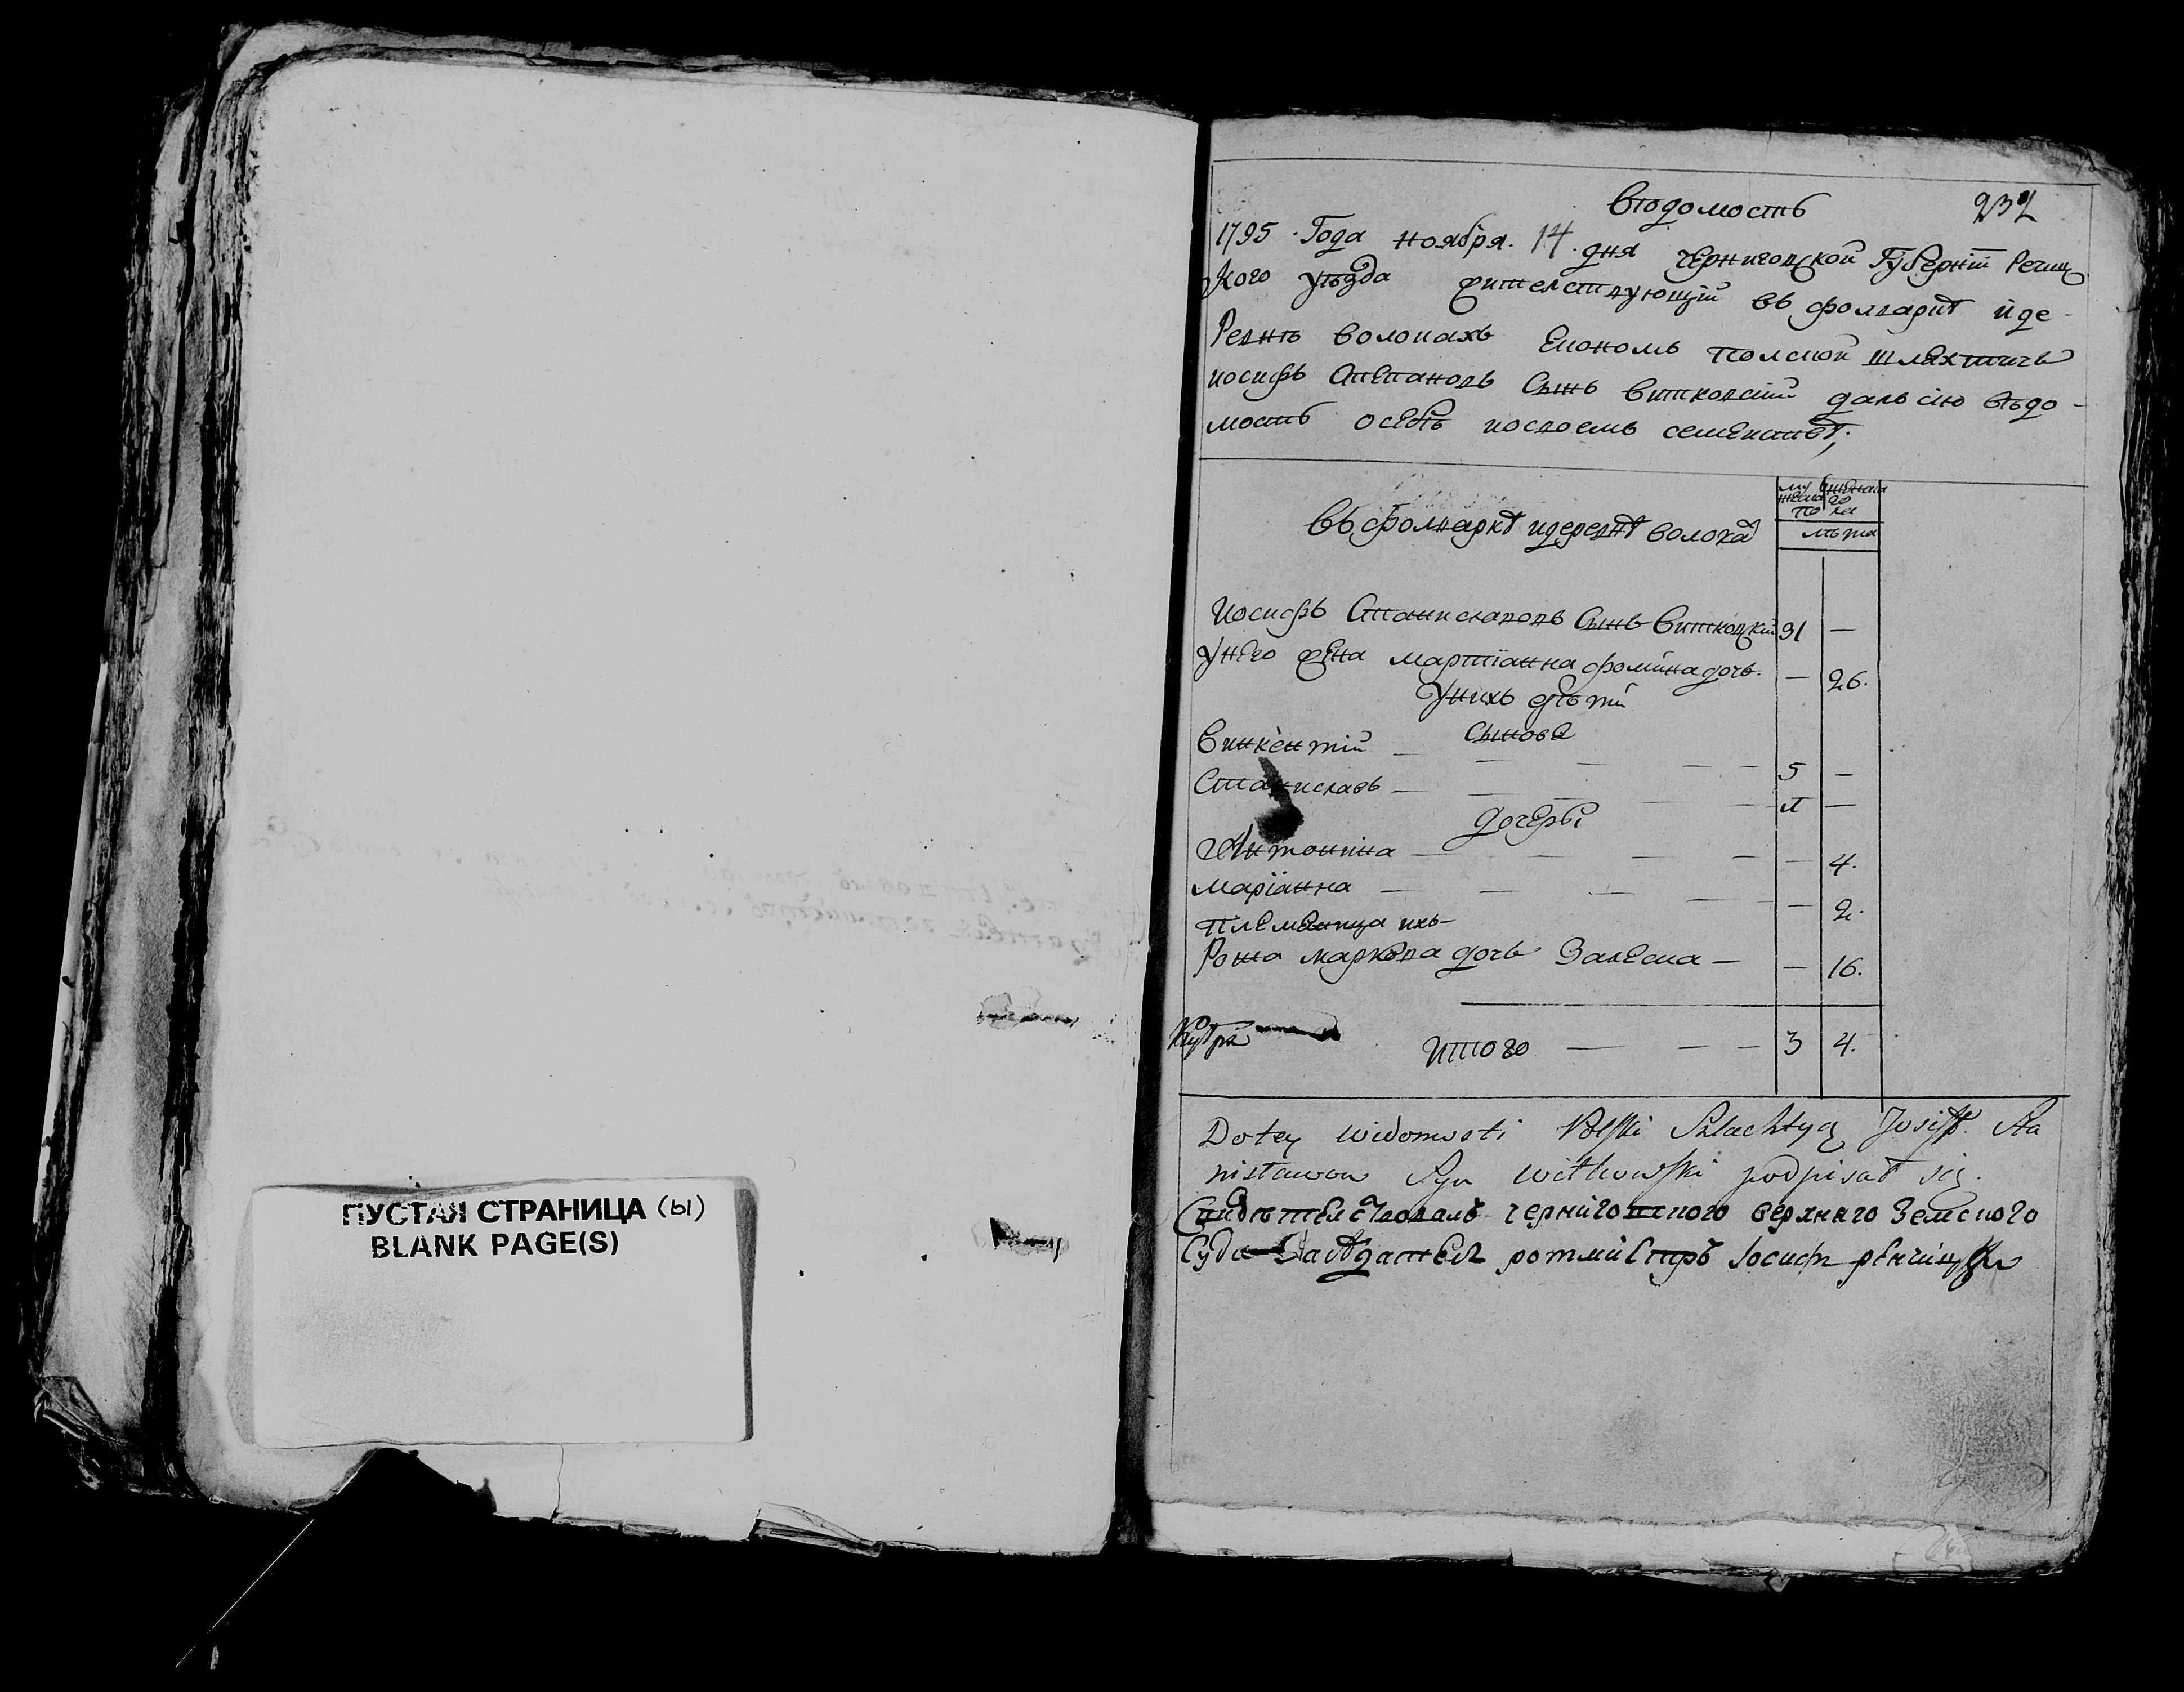 ПУСТАЯ СТРАНИЦА (ы)
BLANK PAGE(S)
Вѣдомость 232
1795 Года ноября 14 дня Черниговской Губерніи Речиц
кого уѣзда жителствующій въ фолварке и де-
ревнѣ Волокахъ Економъ полской шляхтичъ
иосифъ Степановъ Сынъ Витковскій далъ сію вѣдо-
мость о себѣ и о своемъ семействѣ,
въ фолварке и деревне волока
мужеска женска
по ла
лѣта
Иосифъ Станиславовъ Сынъ Витковскій 31 —
У него жена мартіанна фомина дочь — 26.
У нихъ дѣти
Сыновя
Викентій — 5 —
Станиславъ —
дочери
Антонина — — 4.
маріанна — — 2.
племеница ихъ
Роза маркова дочь Залеска — — 16.
Итого — 3 4.
Do tey widomosti Polski Szlachtyc Josiff Sta
nisławow Syn Witkowski podpisał się.
Свидѣтелствовалъ черниговского верхнего Земского
Суда Заседатель ротмистръ Іосифъ